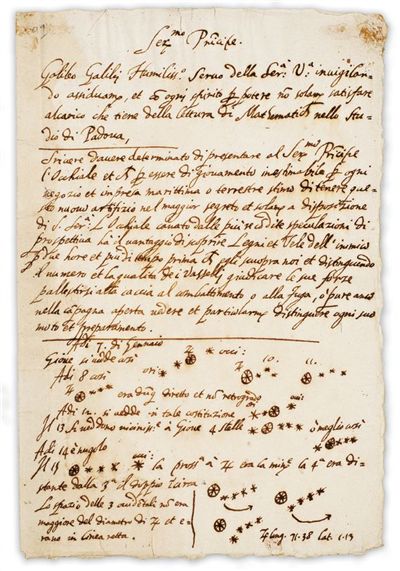 Ser.mo Principe.
Galileo Galilei Humiliss.o Servo della Ser.a V.a invigilan-
do assiduamte, et cō ogni spirito p potere nō solamte satisfare
al carico che tiene della lettura di Mathematiche nello Stu-
dio di Padova,
Scrivere d'avere determinato di presentare al Ser.mo Principe
l'Occhiale et p essere di giovamento inestimabile p ogni
negozio et impresa marittima o terrestre stimo di tenere que-
sto nuovo artifizio nel maggior segreto et solamte a disposizione
di S. Ser.a L'Occhiale cavato dalle più recondite speculazioni di
prospettiva ha il vantaggio di scoprire Legni et Vele dell'inimico
p due hore et più di tempo prima ch egli scuopra noi et distinguendo
il numero et la qualità dei Vasselli giudicare le sue forze
pallestirsi alla caccia al combattimento o alla fuga, o pure anco
nella capagna aperta vedere et particolarmte distinguere ogni suo
moto et preparamento.
Adi 7. di Gennaio
Giove si vedde così
Adi 8 così
10. 11.
era dūq diretto et nō retrogrado
Adi 12. si vedde in tale costituzione
Il 13 si veddono vicinissi à Giove 4 stelle ò meglio così
Adi 14 è nugolo
Il 15 la pross.a à ♃ era la min.e la 4.a era di-
stante dalla 3.a il doppio circa
Lo spazio delle 3 occidentali nō era
maggiore del diametro di ♃ et e-
rano in linea retta.
♃ long. 71.38 lat. 1.13